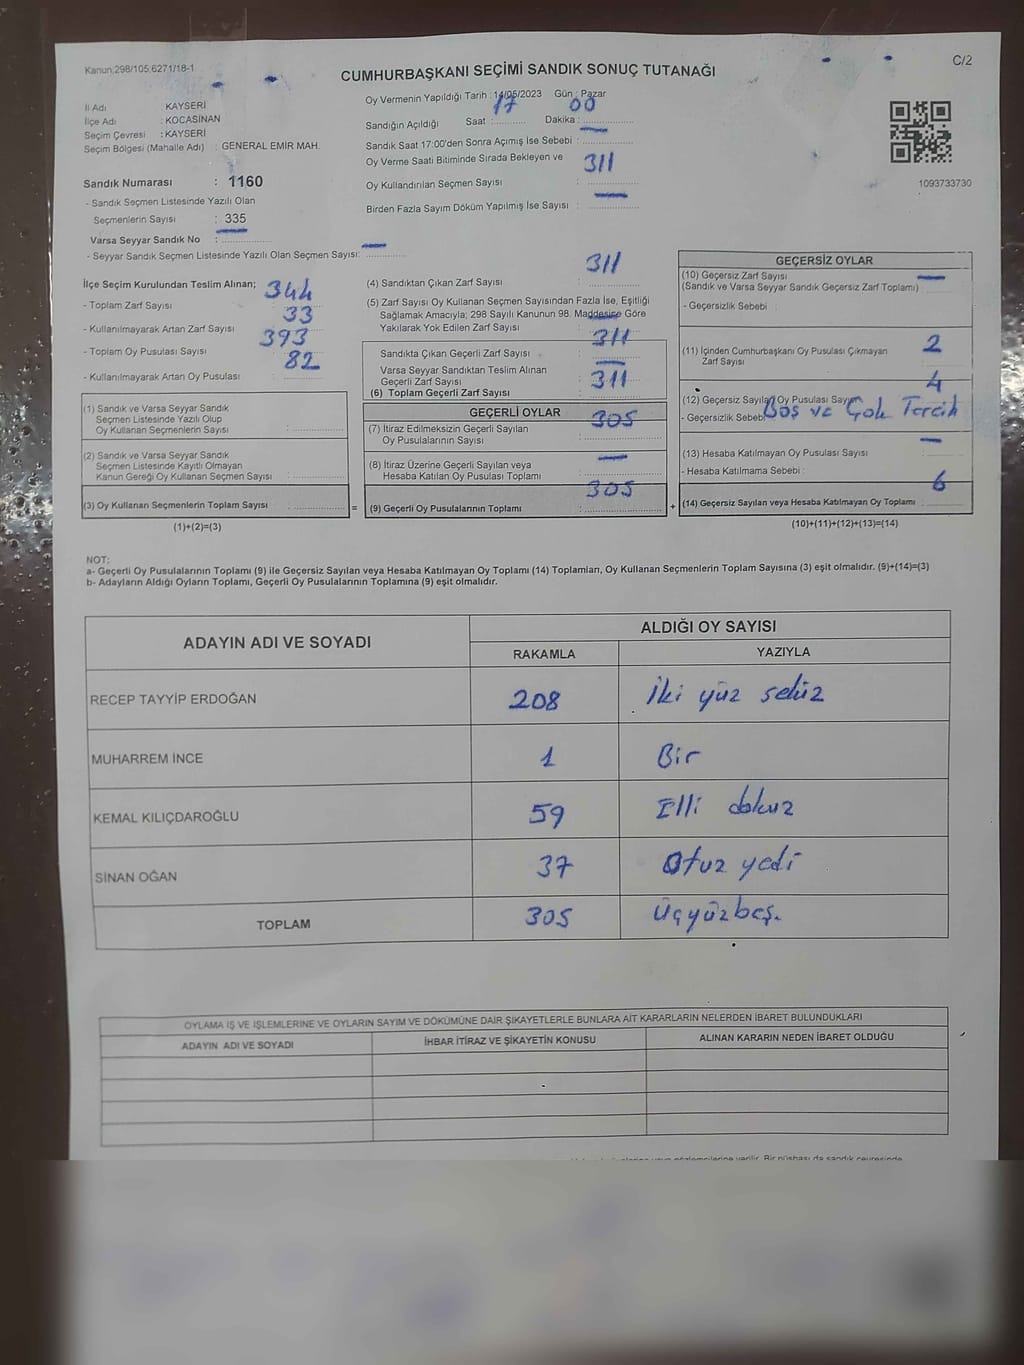 Kanun:298/105;6271/18-1
C/2
CUMHURBAŞKANI SEÇİMİ SANDIK SONUÇ TUTANAĞI
İl Adı : KAYSERİ
İlçe Adı : KOCASİNAN
Seçim Çevresi : KAYSERİ
Seçim Bölgesi (Mahalle Adı) : GENERAL EMİR MAH.
Sandık Numarası : 1160
- Sandık Seçmen Listesinde Yazılı Olan
Seçmenlerin Sayısı : 335
Varsa Seyyar Sandık No : —
- Seyyar Sandık Seçmen Listesinde Yazılı Olan Seçmen Sayısı: —
Oy Vermenin Yapıldığı Tarih : 14/05/2023 Gün : Pazar
Sandığın Açıldığı Saat : 17 Dakika : 00
Sandık Saat 17:00'den Sonra Açımış İse Sebebi : —
Oy Verme Saati Bitiminde Sırada Bekleyen ve
Oy Kullandırılan Seçmen Sayısı : 311
Birden Fazla Sayım Döküm Yapılmış İse Sayısı : —
1093733730
İlçe Seçim Kurulundan Teslim Alınan;
- Toplam Zarf Sayısı : 344
- Kullanılmayarak Artan Zarf Sayısı : 33
- Toplam Oy Pusulası Sayısı : 393
- Kullanılmayarak Artan Oy Pusulası : 82
(1) Sandık ve Varsa Seyyar Sandık
Seçmen Listesinde Yazılı Olup
Oy Kullanan Seçmenlerin Sayısı :
(2) Sandık ve Varsa Seyyar Sandık
Seçmen Listesinde Kayıtlı Olmayan
Kanun Gereği Oy Kullanan Seçmen Sayısı :
(3) Oy Kullanan Seçmenlerin Toplam Sayısı :
(1)+(2)=(3)
=
(4) Sandıktan Çıkan Zarf Sayısı : 311
(5) Zarf Sayısı Oy Kullanan Seçmen Sayısından Fazla İse, Eşitliği
Sağlamak Amacıyla; 298 Sayılı Kanunun 98. Maddesine Göre
Yakılarak Yok Edilen Zarf Sayısı : —
Sandıkta Çıkan Geçerli Zarf Sayısı : 311
Varsa Seyyar Sandıktan Teslim Alınan
Geçerli Zarf Sayısı : —
(6) Toplam Geçerli Zarf Sayısı : 311
GEÇERLİ OYLAR
(7) İtiraz Edilmeksizin Geçerli Sayılan
Oy Pusulalarının Sayısı : 305
(8) İtiraz Üzerine Geçerli Sayılan veya
Hesaba Katılan Oy Pusulası Toplamı : —
(9) Geçerli Oy Pusulalarının Toplamı : 305
+
GEÇERSİZ OYLAR
(10) Geçersiz Zarf Sayısı : —
(Sandık ve Varsa Seyyar Sandık Geçersiz Zarf Toplamı)
- Geçersizlik Sebebi :
(11) İçinden Cumhurbaşkanı Oy Pusulası Çıkmayan
Zarf Sayısı : 2
(12) Geçersiz Sayılan Oy Pusulası Sayısı : 4
- Geçersizlik Sebebi Boş ve Çok Tercih
(13) Hesaba Katılmayan Oy Pusulası Sayısı : —
- Hesaba Katılmama Sebebi :
(14) Geçersiz Sayılan veya Hesaba Katılmayan Oy Toplamı : 6
(10)+(11)+(12)+(13)=(14)
NOT:
a- Geçerli Oy Pusulalarının Toplamı (9) ile Geçersiz Sayılan veya Hesaba Katılmayan Oy Toplamı (14) Toplamları, Oy Kullanan Seçmenlerin Toplam Sayısına (3) eşit olmalıdır. (9)+(14)=(3)
b- Adayların Aldığı Oyların Toplamı, Geçerli Oy Pusulalarının Toplamına (9) eşit olmalıdır.
ADAYIN ADI VE SOYADI
ALDIĞI OY SAYISI
RAKAMLA YAZIYLA
RECEP TAYYİP ERDOĞAN 208 İki yüz sekiz
MUHARREM İNCE 1 Bir
KEMAL KILIÇDAROĞLU 59 Elli dokuz
SİNAN OĞAN 37 Otuz yedi
TOPLAM 305 Üçyüzbeş.
OYLAMA İŞ VE İŞLEMLERİNE VE OYLARIN SAYIM VE DÖKÜMÜNE DAİR ŞİKAYETLERLE BUNLARA AİT KARARLARIN NELERDEN İBARET BULUNDUKLARI
ADAYIN ADI VE SOYADI İHBAR İTİRAZ VE ŞİKAYETİN KONUSU ALINAN KARARIN NEDEN İBARET OLDUĞU